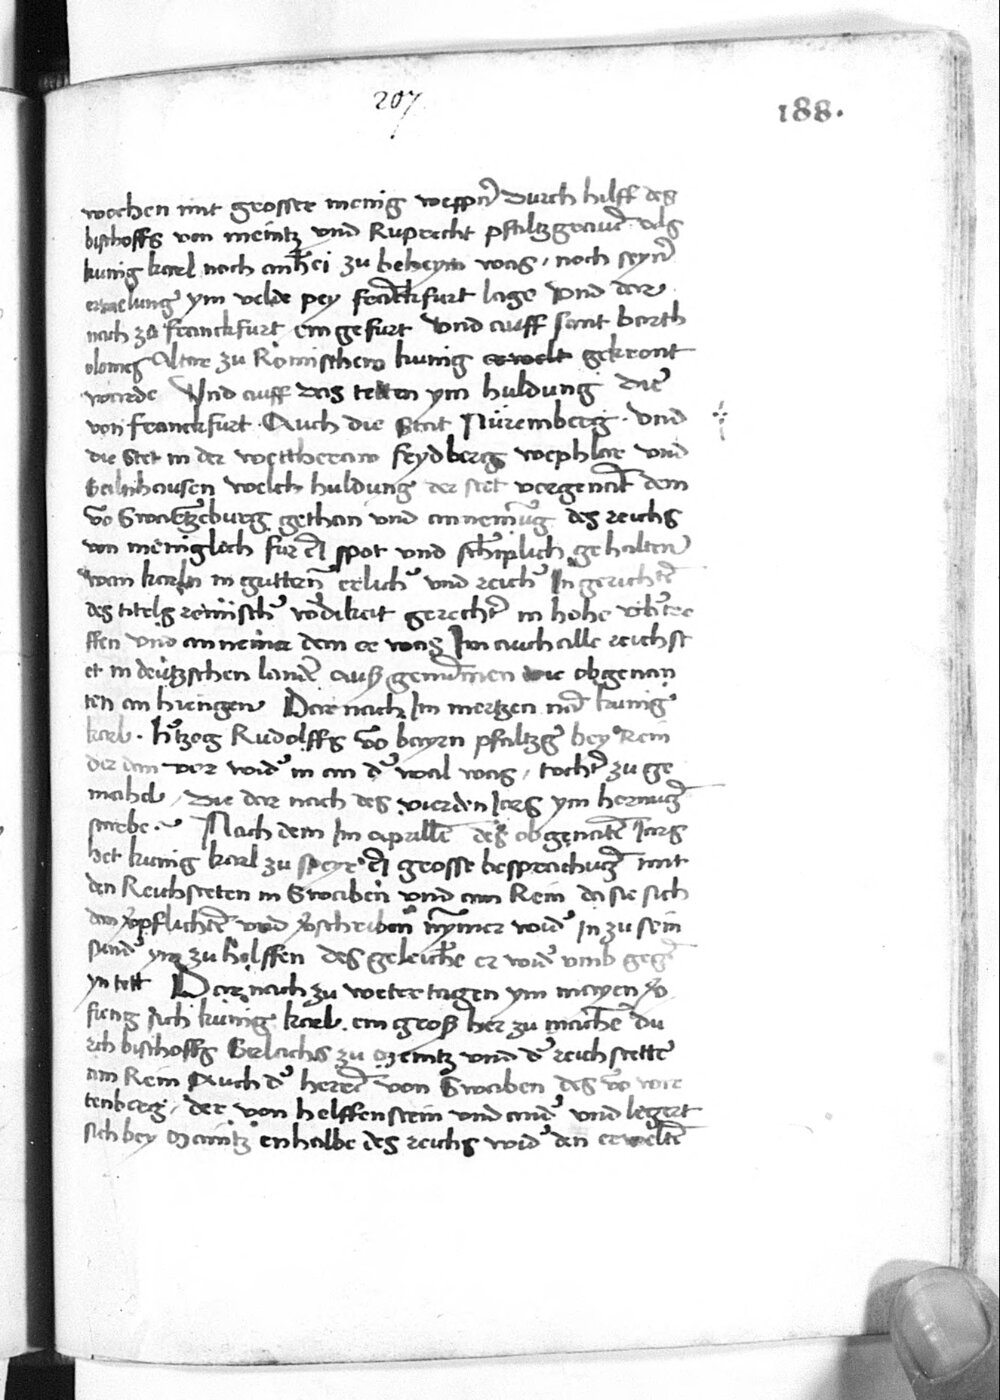 207
188.
wochen mit grosser menig weppn̄ durch hilff des
bischoffs von meintz vnd Ruprecht pfaltzgraue als
kunig karl noch anhei zu beheym was, noch seyn̄
erwelung ym velde pey franckfurt lage vnd dar
nach zu franckfurt eingefurt vnd auff sant barth
olomes Altar zu Romischem kunig gekront
warde Vnd auff das tetten ym huldung die
von franckfurt. Auch die Stat Nüremberg. vnd
die Stet in der wettheraw feydberg wephlar vnd
Geilnhausen welch huldung der stet vorgenāt dem
vō Swartzeburg gethan vnd annemūg des reichs
von meniglich fur eī spot vnd schimplich gehalten
wan karln in guttern erlich vnd reich In gerichtē
des titels remisch wirdikeit gerecht in hohe
ffen vnd anneme dem er was Im auch alle reichst
et in deutzschen landē außgenūmen die obgenan
ten anhiengen Dar nach Im mertzen nā kunig
karl. h̄tzog Rudolffs vō bayrn pfaltzg bey Rein
der dan vor wid in an d wal was, tocht zu ge
mahel, Die dar nach des vierden Jars ym hornūg
starbe. Nach dem Im aprille des obgenātē Jars
het kunig karl zu speyr eī grosse besprachūg mit
den Reichsteten in Swaben vnd am Rein da sie sich
dan v̄pflichtē vnd v̄schriben nymer wid In zu sein
sund ym zu helffen des geleiche er wid vmb gegē
yn tett Dar nach zu wetertagen ym mayen v̄
fieng sich kunig karl. ein groß her zu machē du
rch bischoffs Gerlachs zu meintz vnd d reichstette
am Rein Auch d herrē von Swaben des vō wir
tenberg, der von helffenstein vnd and vnd legert
sich bey maintz enhalbe des reichs wid den erweltē